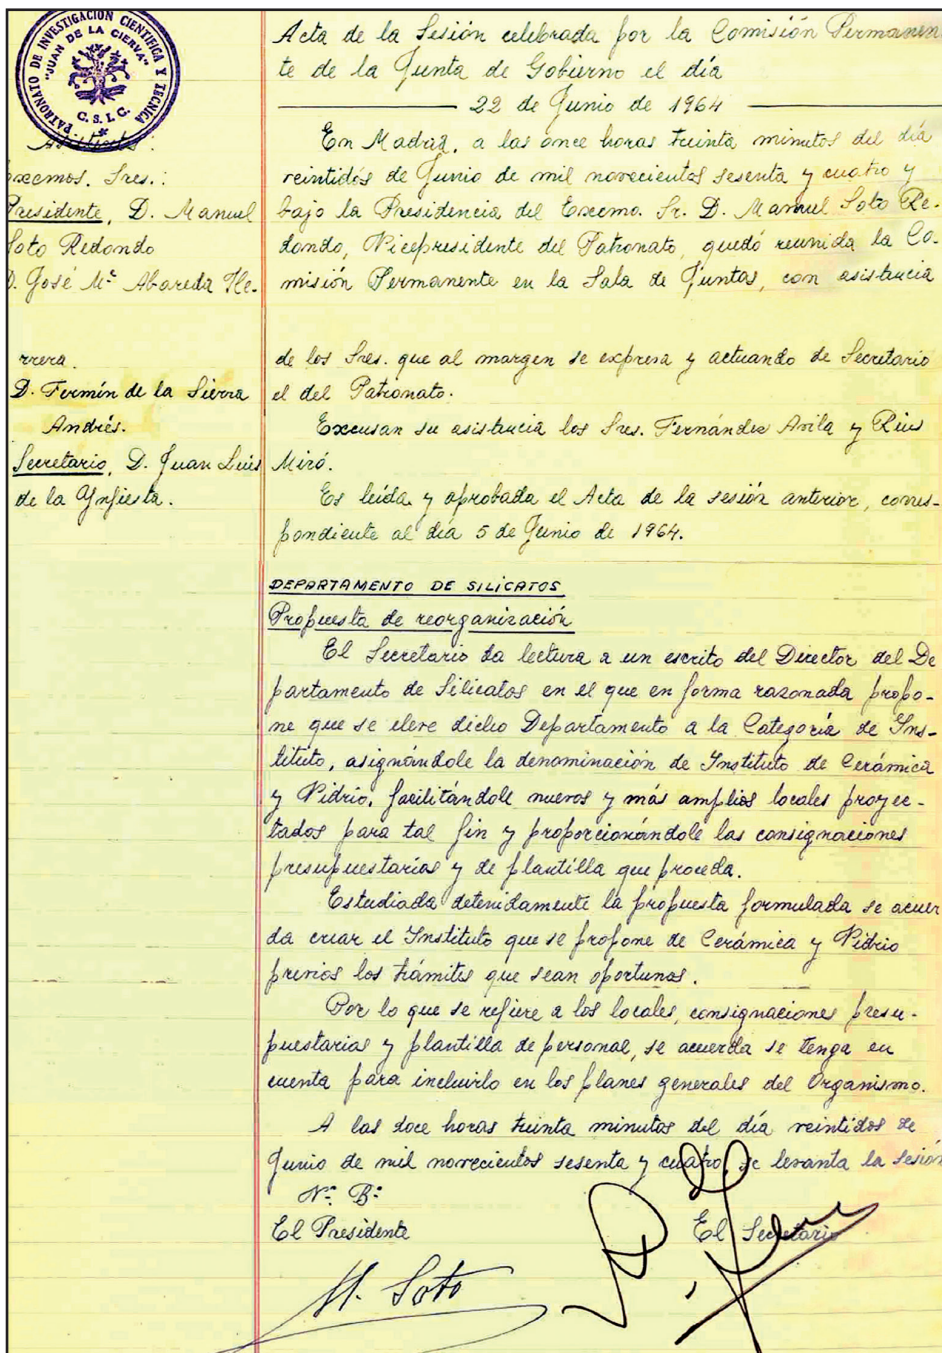 PATRONATO DE INVESTIGACIÓN CIENTÍFICA Y TÉCNICA
"JUAN DE LA CIERVA"
C. S. I. C.
Acta de la Sesión celebrada por la Comisión Permanen
te de la Junta de Gobierno el día
22 de Junio de 1964
Asistentes:
Excmos. Sres.:
Presidente, D. Manuel
Soto Redondo
D. José Mª Albareda He-
rrera.
D. Fermín de la Sierra
Andrés.
Secretario, D. Juan Luis
de la Ynfiesta.
En Madrid, a las once horas treinta minutos del día
veintidós de Junio de mil novecientos sesenta y cuatro y
bajo la Presidencia del Excmo. Sr. D. Manuel Soto Re-
dondo, Vicepresidente del Patronato, quedó reunida la Co-
misión Permanente en la Sala de Juntas, con asistencia
de los Sres. que al margen se expresa y actuando de Secretario
el del Patronato.
Excusan su asistencia los Sres. Fernández Avila y Rius
Miró.
Es leída y aprobada el Acta de la sesión anterior, corres-
pondiente al día 5 de Junio de 1964.
DEPARTAMENTO DE SILICATOS
Propuesta de reorganización
El Secretario da lectura a un escrito del Director del De
partamento de Silicatos en el que en forma razonada propo-
ne que se eleve dicho Departamento a la Categoría de Ins-
tituto, asignándole la denominación de Instituto de Cerámica
y Vidrio, facilitándole nuevos y más amplios locales proyec-
tados para tal fin y proporcionándole las consignaciones
presupuestarias y de plantilla que proceda.
Estudiada detenidamente la propuesta formulada se acuer
da crear el Instituto que se propone de Cerámica y Vidrio
previos los trámites que sean oportunos.
Por lo que se refiere a los locales, consignaciones presu-
puestarias y plantilla de personal, se acuerda se tenga en
cuenta para incluirlo en los planes generales del Organismo.
A las doce horas treinta minutos del día veintidós de
Junio de mil novecientos sesenta y cuatro, se levanta la sesión
Vº Bº
El Presidente
El Secretario
M. Soto